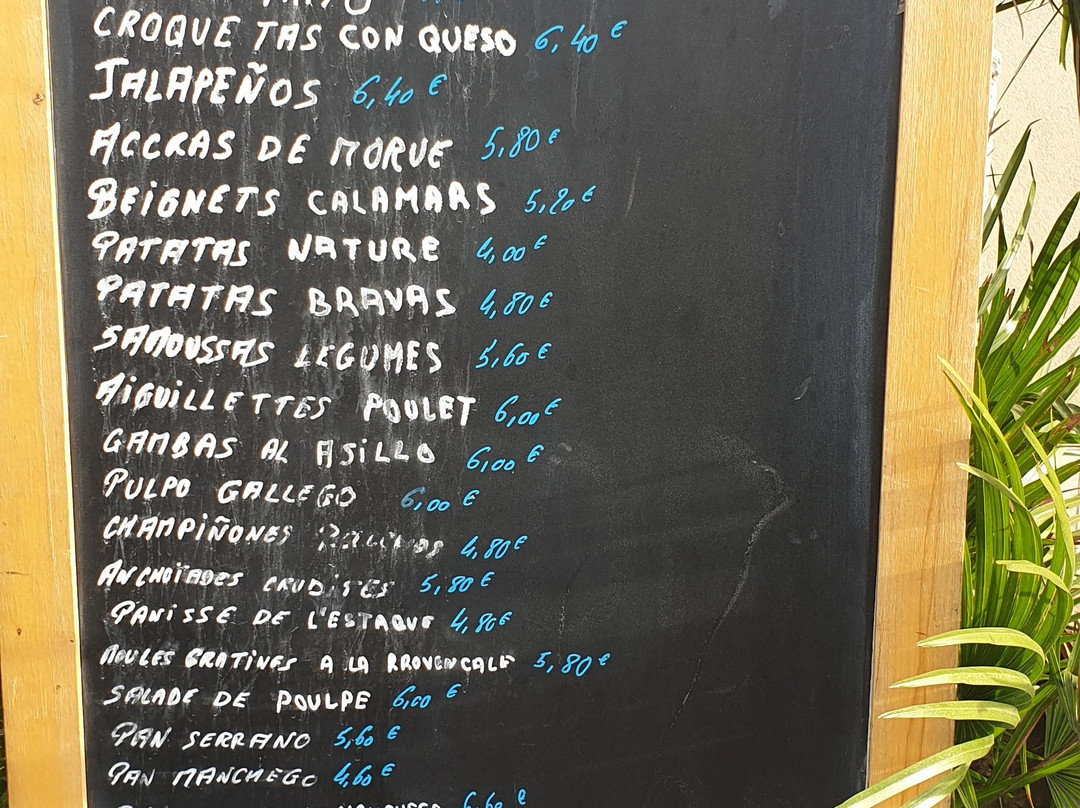 CROQUETAS CON QUESO 6,40 €
JALAPEÑOS 6,40 €
ACCRAS DE MORUE 5,80 €
BEIGNETS CALAMARS 5,20 €
PATATAS NATURE 4,00 €
PATATAS BRAVAS 4,80 €
SAMOUSSAS LEGUMES 5,60 €
AIGUILLETTES POULET 6,00 €
GAMBAS AL AJILLO 6,00 €
PULPO GALLEGO 6,00 €
CHAMPIÑONES 4,80 €
ANCHOÏADES CRUDITES 5,80 €
PANISSE DE L'ESTAQUE 4,80 €
MOULES GRATINES A LA PROVENCALE 5,80 €
SALADE DE POULPE 6,00 €
PAN SERRANO 5,60 €
PAN MANCHEGO 4,60 €
6,60 €